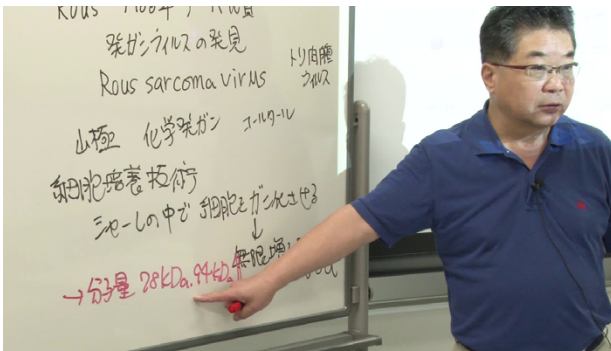 Rous
発ガンウイルスの発見
Rous sarcoma virus
トリ肉腫
ウイルス
山極 化学発ガン コールタール
細胞培養技術
シャーレの中で 細胞をガン化させる
↓
無限増
→分子量 78kDa, 94kDa